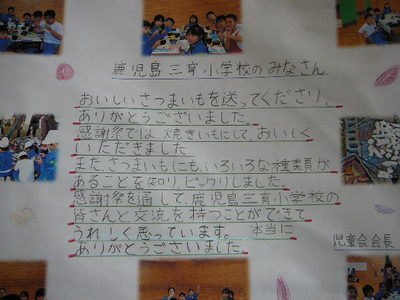 鹿児島三育小学校のみなさん
おいしいさつまいもを送ってくださり、
ありがとうございました。
感謝祭では、焼きいもにして、おいしく
いただきました。
また、さつまいもにも、いろいろな種類が
あることを知り、ビックリしました。
感謝祭を通して、鹿児島三育小学校の
皆さんと交流を持つことができて
うれしく思っています。 本当に
ありがとうございました。
児童会会長